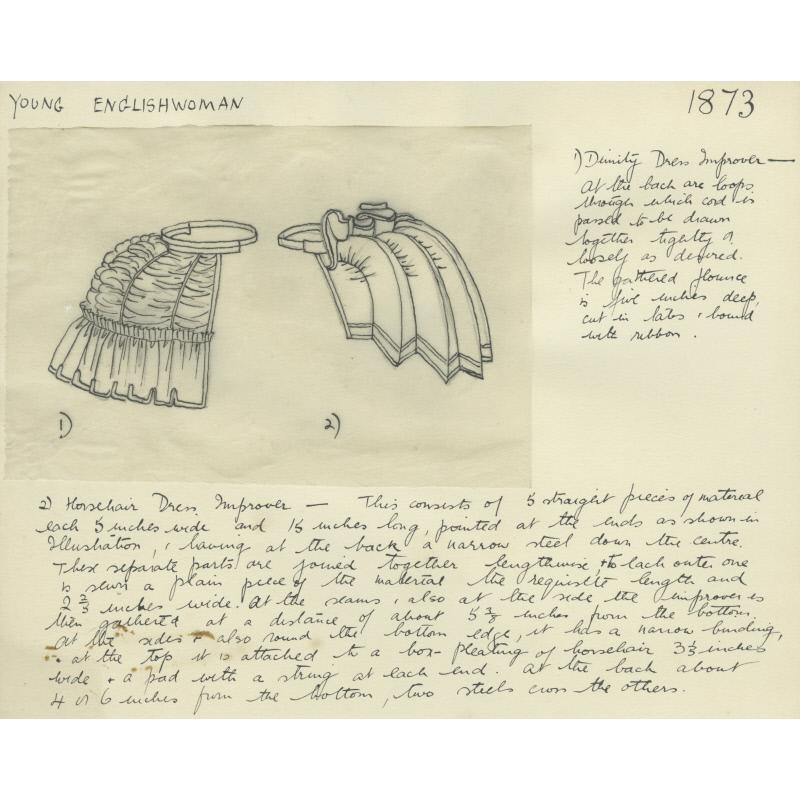 YOUNG ENGLISHWOMAN
1873
1) Dimity Dress Improver —
At the back are loops
through which cord is
passed to be drawn
together tightly or
loosely as desired.
The gathered flounce
is five inches deep,
cut in tabs & bound
with ribbon.
1)
2)
2) Horsehair Dress Improver — This consists of 5 straight pieces of material
each 5 inches wide and 15 inches long, pointed at the ends as shown in
Illustration, & having at the back a narrow steel down the centre.
These separate parts are joined together lengthwise & to each outer one
is sewn a plain piece of the material the requisite length and
2 2/3 inches wide. At the seams, also at the side the improver is
then gathered at a distance of about 5 inches from the bottom.
At the sides & also round the bottom edge, it has a narrow binding,
at the top it is attached to a box-pleating of horsehair 3 1/3 inches
wide & a pad with a string at each end. At the back about
4 or 6 inches from the bottom, two steels cross the others.